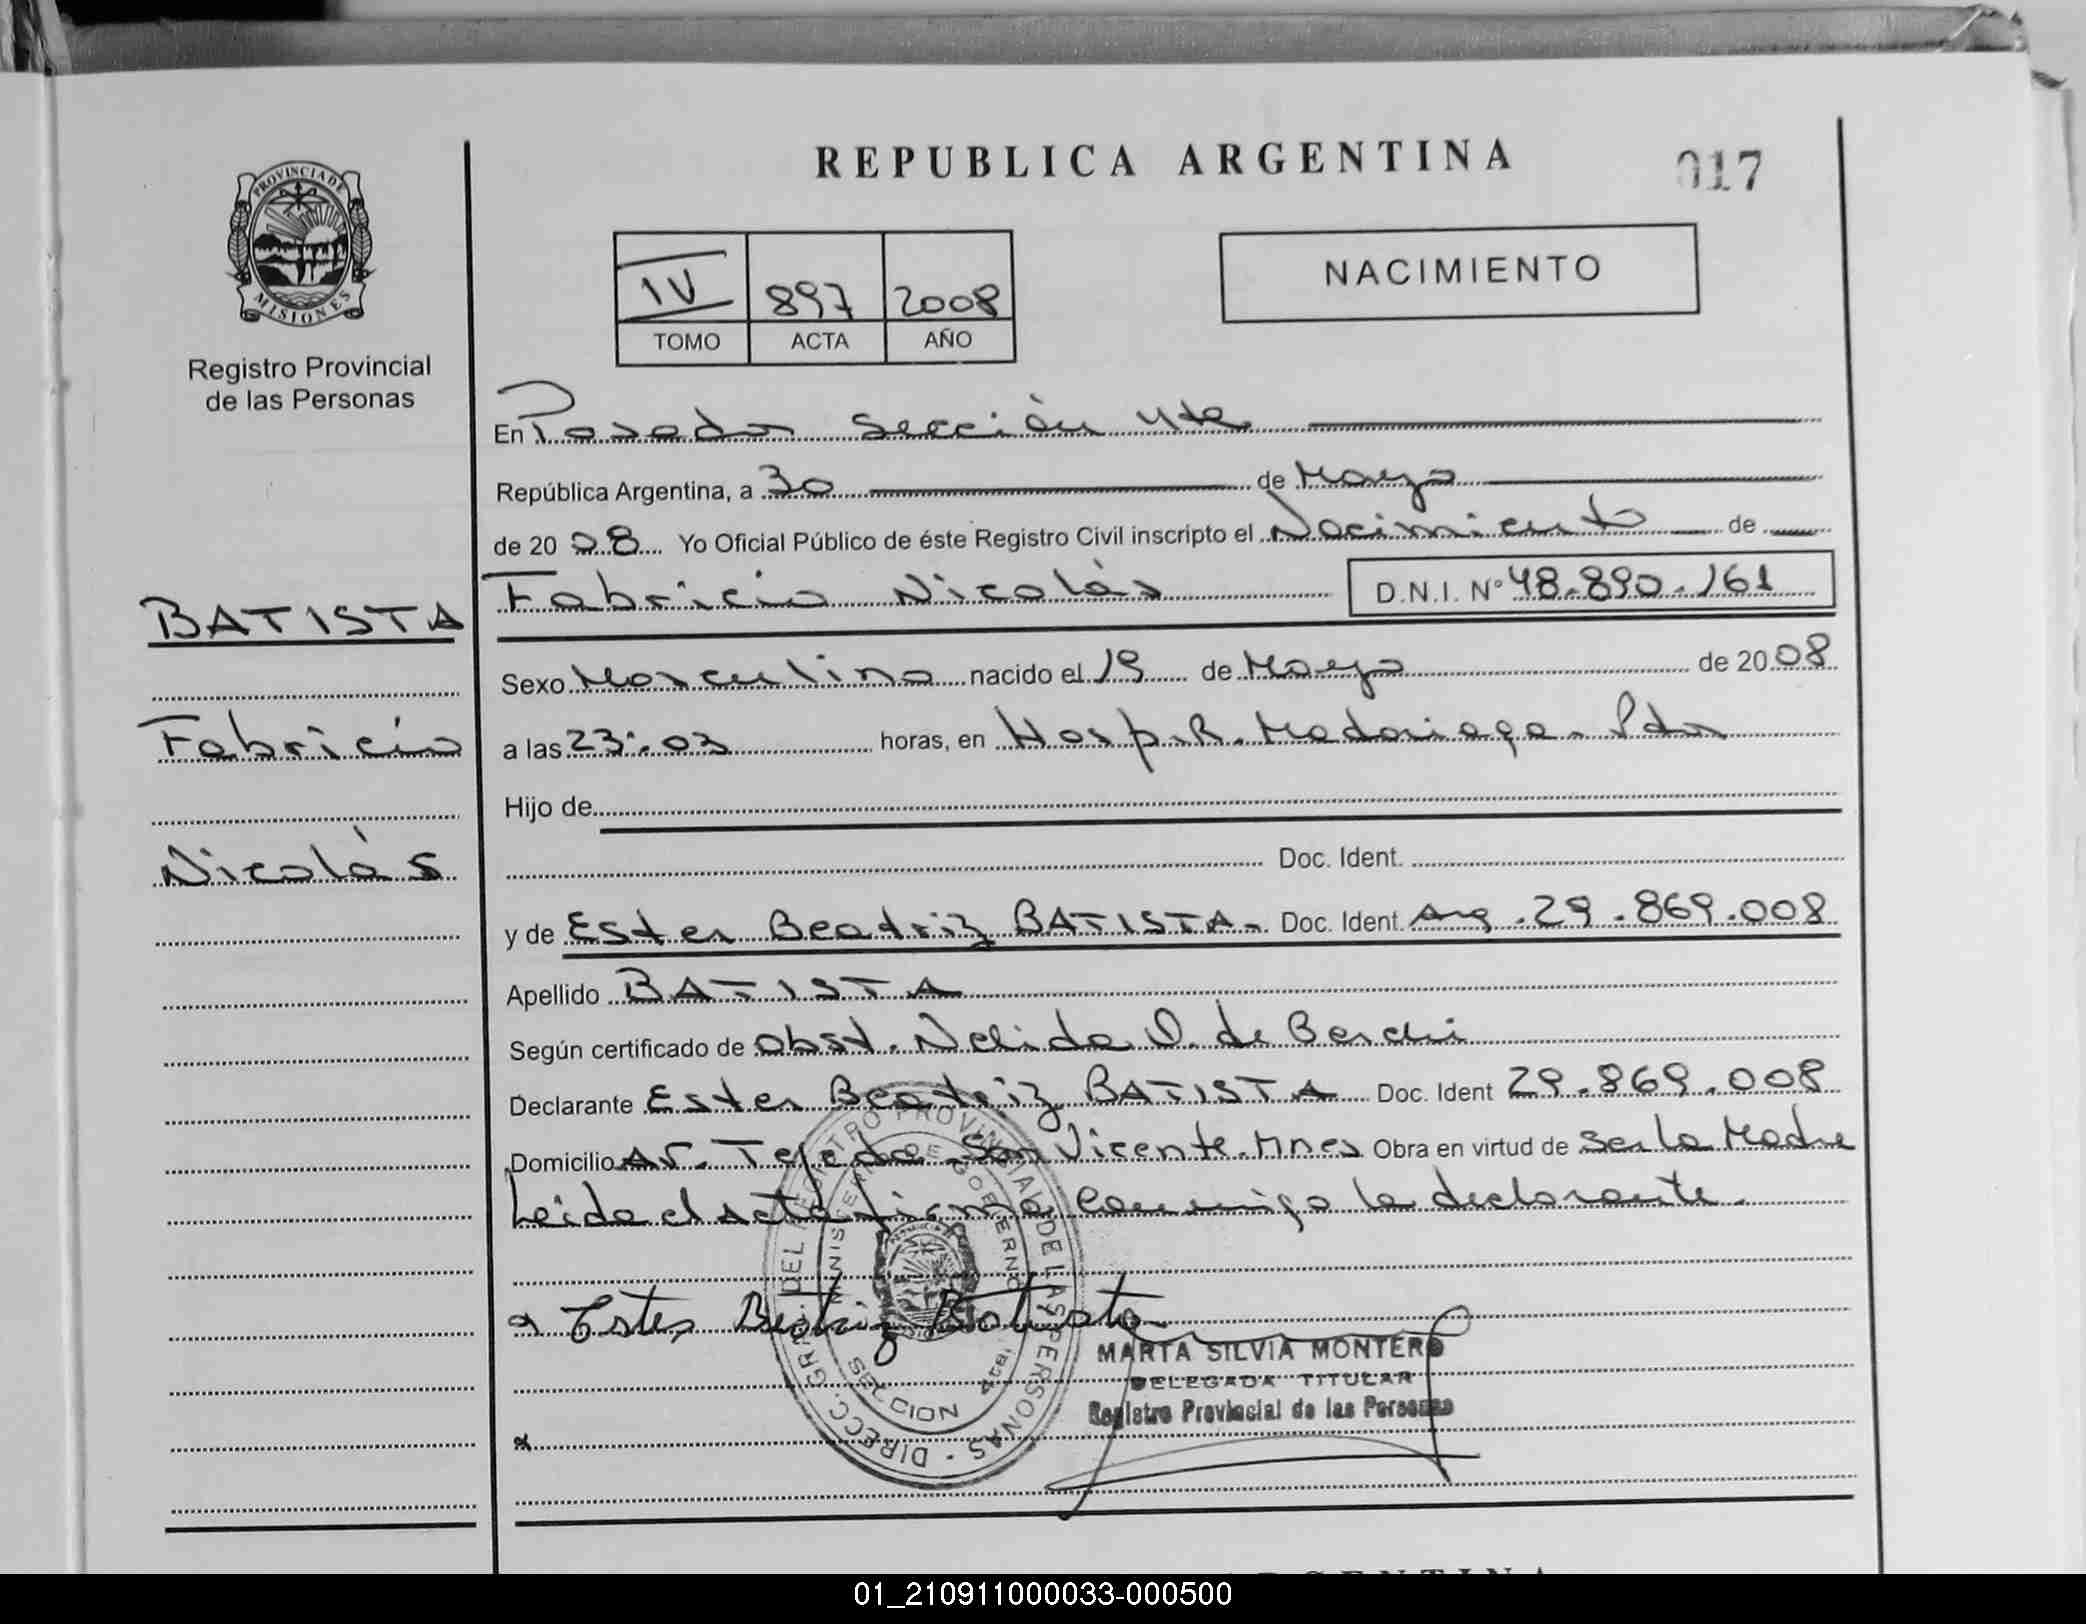 REPUBLICA ARGENTINA
017
PROVINCIA DE
MISIONES
Registro Provincial
de las Personas
IV 897 2008
TOMO ACTA AÑO
NACIMIENTO
En Posadas Sección 4ta
República Argentina, a 30 de Mayo
de 20 08 Yo Oficial Público de éste Registro Civil inscripto el Nacimiento de
Fabricio Nicolás D.N.I. Nº 48.890.161
BATISTA
Fabricio
Nicolás
Sexo Masculino nacido el 19 de Mayo de 20 08
a las 23:03 horas, en Hosp. R. Madariaga - Pdas
Hijo de
Doc. Ident.
y de Ester Beatriz BATISTA - Doc. Ident. Arg. 29.869.008
Apellido BATISTA
Según certificado de Obst. Nelida O. de Berchi
Declarante Ester Beatriz BATISTA Doc. Ident 29.869.008
Domicilio Av. Tejeda San Vicente. Mnes Obra en virtud de ser la Madre
Leida el acta firma conmigo la declarante.
Ester Beatriz Batista
DIRECC. GRAL. DEL REGISTRO PROVINCIAL DE LAS PERSONAS
MINISTERIO DE GOBIERNO
4ta
MARTA SILVIA MONTERO
DELEGADA TITULAR
Registro Provincial de las Personas
01_210911000033-000500